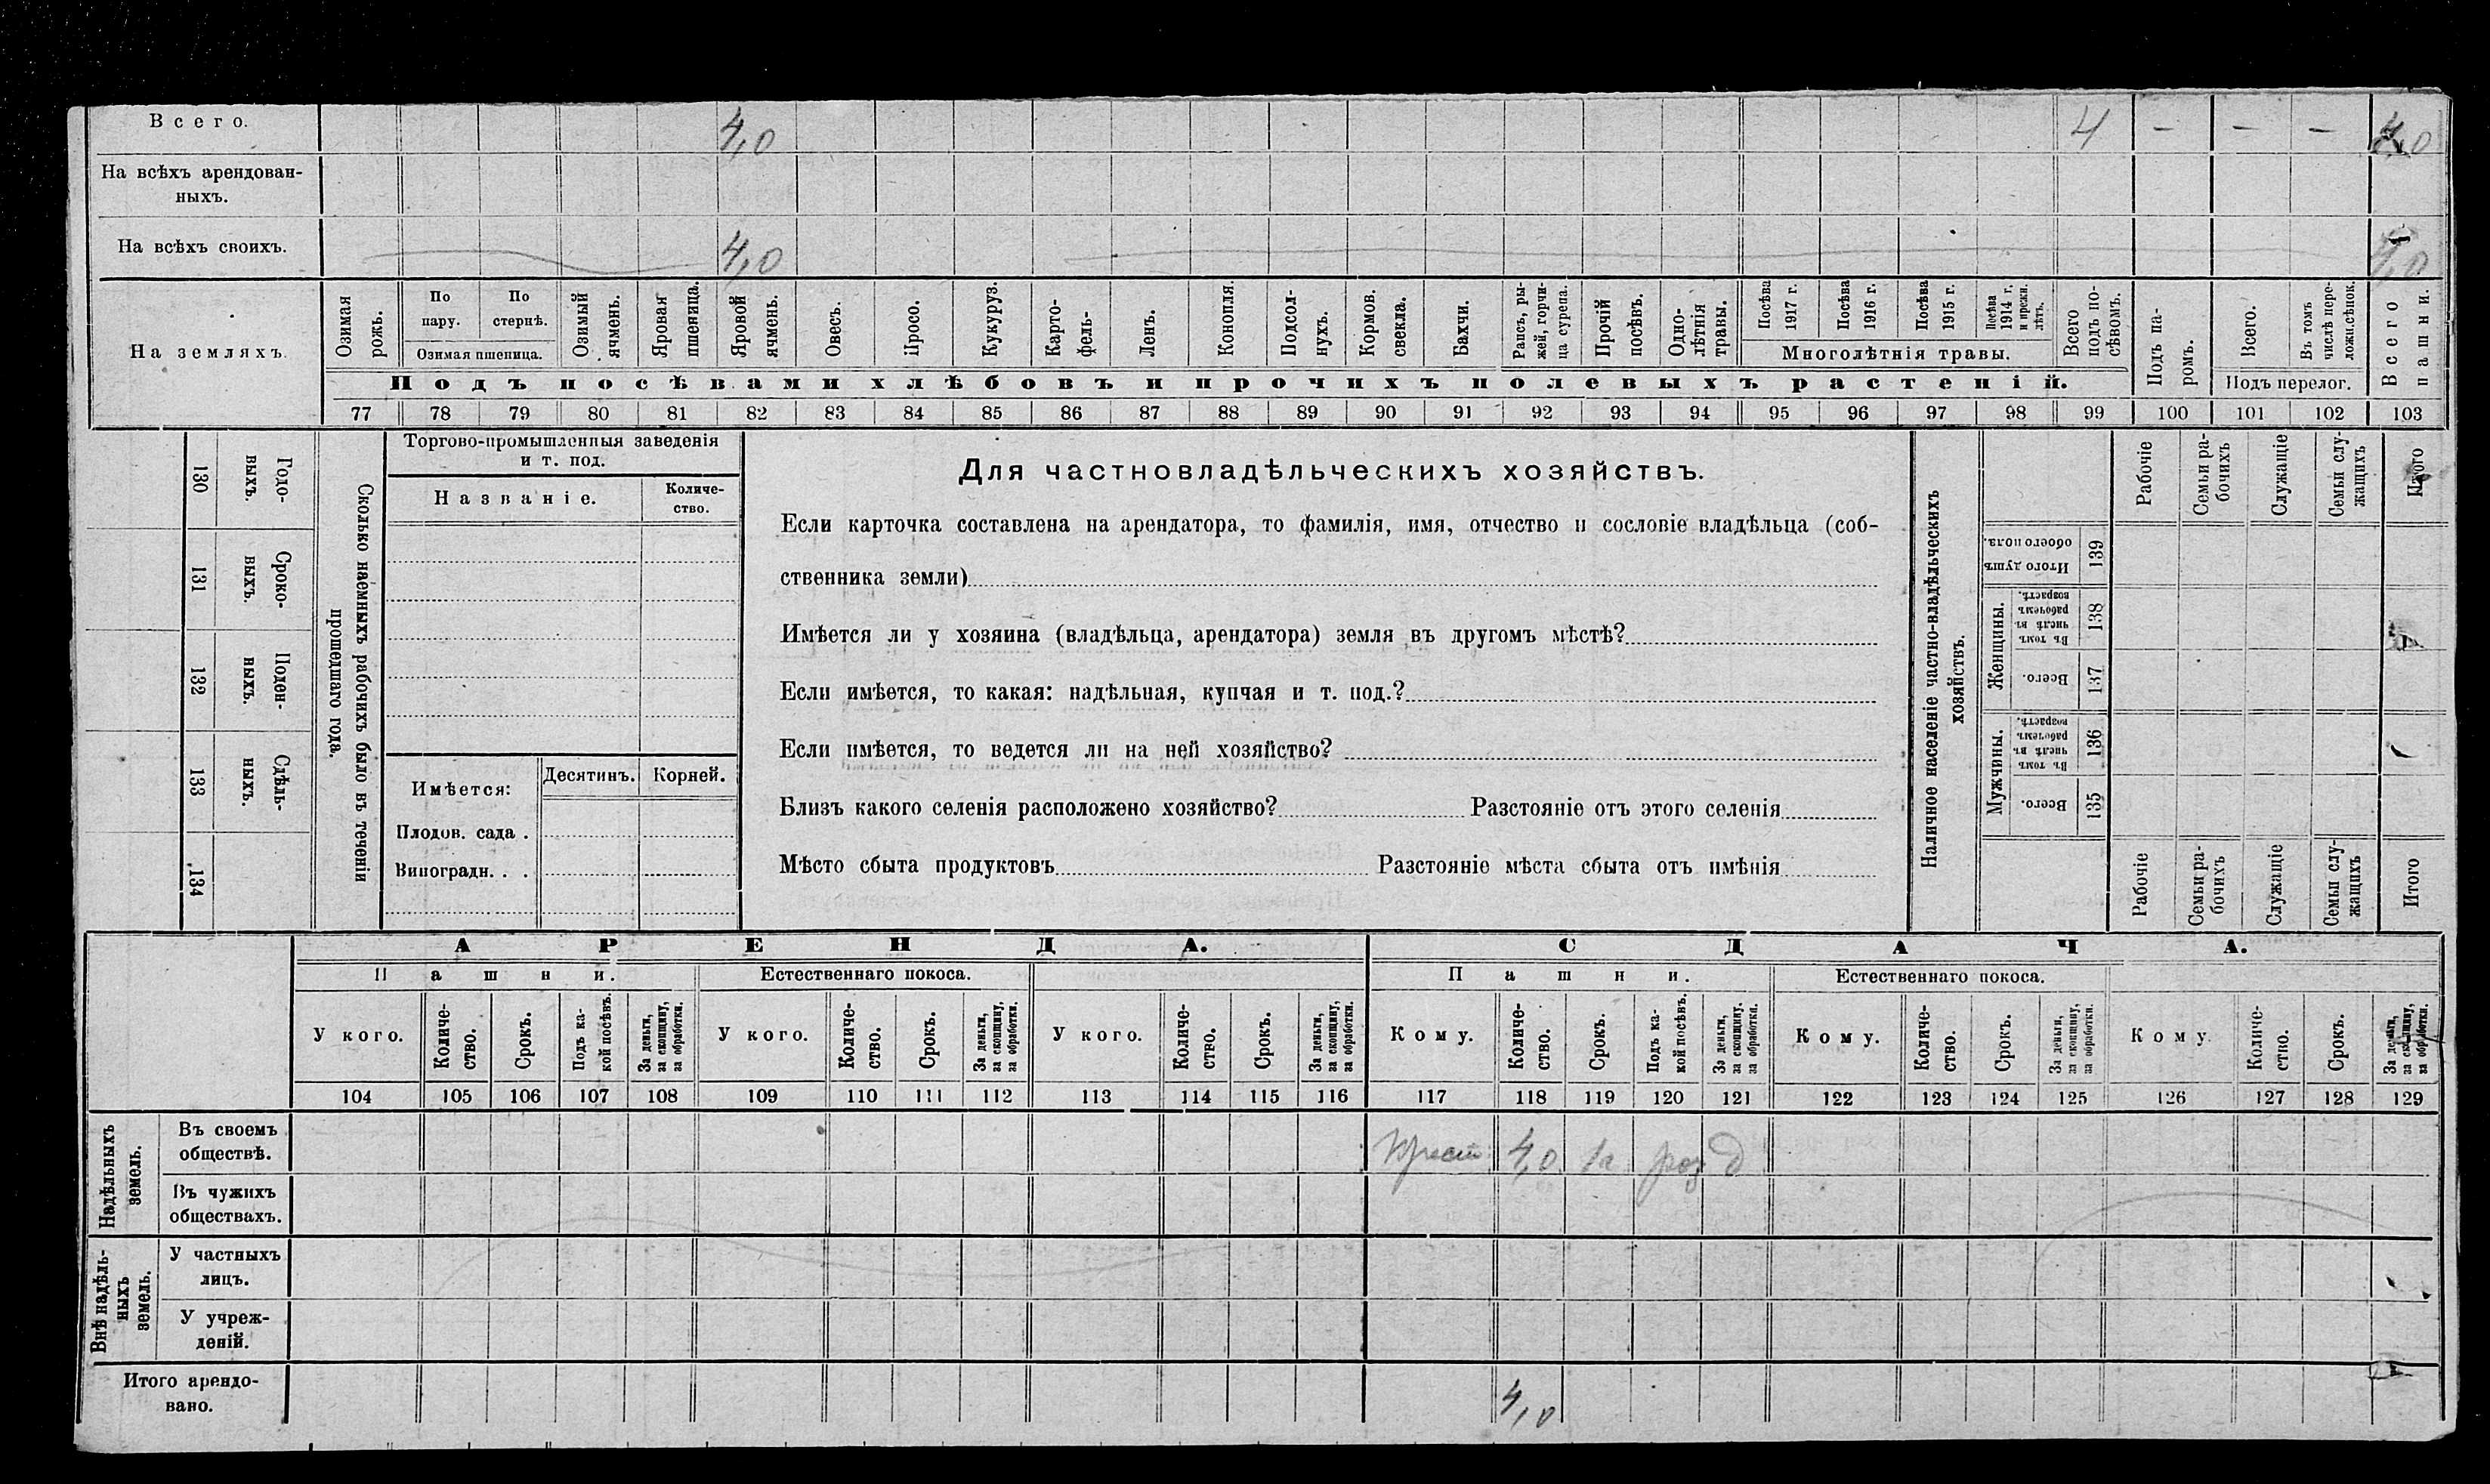 Всего. 4,0 4 – – – 4,0
На всѣхъ арендован-
ныхъ.
На всѣхъ своихъ. 4,0 4,0
На земляхъ.
Озимая рожь.
По пару.
По стернѣ.
Озимая пшеница.
Озимый ячмень.
Яровая пшеница.
Яровой ячмень.
Овесъ.
Просо.
Кукуруз.
Карто-
фель-
Ленъ.
Конопля.
Подсол-
нухъ.
Кормов. свекла.
Бахчи.
Рапсъ, ры-
жей, горчи-
ца сурепа.
Прочій посѣвъ.
Одно-
лѣтнія
травы.
Посѣва 1917 г.
Посѣва 1916 г.
Посѣва 1915 г.
Посѣва 1914 г. и прежн. лѣтъ.
Многолѣтнія травы.
Всего подъ по-
сѣвомъ.
Подъ па-
ромъ.
Всего.
Въ томъ числѣ пере-
ложн. сѣнок.
Подъ перелог.
Всего пашни.
Подъ посѣвами хлѣбовъ и прочихъ полевыхъ растеній.
77 78 79 80 81 82 83 84 85 86 87 88 89 90 91 92 93 94 95 96 97 98 99 100 101 102 103
130 Годо-
выхъ.
131 Сроко-
выхъ.
132 Поден-
ныхъ.
133 Сдѣль-
ныхъ.
134
Сколько наемныхъ рабочихъ было въ теченіи
прошедшаго года.
Торгово-промышленныя заведенія
и т. под.
Названіе. Количе-
ство.
Имѣется: Десятинъ. Корней.
Плодов. сада .
Виноградн. . .
Для частновладѣльческихъ хозяйствъ.
Если карточка составлена на арендатора, то фамилія, имя, отчество и сословіе владѣльца (соб-
ственника земли)
Имѣется ли у хозяина (владѣльца, арендатора) земля въ другомъ мѣстѣ?
Если имѣется, то какая: надѣльная, купчая и т. под.?
Если имѣется, то ведется ли на ней хозяйство?
Близъ какого селенія расположено хозяйство? Разстояніе отъ этого селенія
Мѣсто сбыта продуктовъ Разстояніе мѣста сбыта отъ имѣнія
Наличное населеніе частно-владѣльческихъ
хозяйствъ.
Рабочіе
Семьи ра-
бочихъ
Служащіе
Семьи слу-
жащихъ
Итого
Итого душъ обоего пола. 139
Женщины.
Въ томъ числѣ въ рабочемъ возрастѣ. 138
Всего. 137
Мужчины.
Въ томъ числѣ въ рабочемъ возрастѣ. 136
Всего. 135
Рабочіе
Семьи ра-
бочихъ
Служащіе
Семьи слу-
жащихъ
Итого
АРЕНДА. СДАЧА.
Пашни. Естественнаго покоса. Пашни. Естественнаго покоса.
У кого. Количе-
ство. Срокъ. Подъ ка-
кой посѣвъ. За деньги, за скопщину, за обработки.
У кого. Количе-
ство. Срокъ. За деньги, за скопщину, за обработки.
У кого. Количе-
ство. Срокъ. За деньги, за скопщину, за обработки.
Кому. Количе-
ство. Срокъ. Подъ ка-
кой посѣвъ. За деньги, за скопщину, за обработки.
Кому. Количе-
ство. Срокъ. За деньги, за скопщину, за обработки.
Кому. Количе-
ство. Срокъ. За деньги, за скопщину, за обработки.
104 105 106 107 108 109 110 111 112 113 114 115 116 117 118 119 120 121 122 123 124 125 126 127 128 129
Надѣльныхъ
земель.
Въ своемъ
обществѣ. Крест. 4,0 1г. роз д
Въ чужихъ
обществахъ.
Внѣ надѣль-
ныхъ
земель.
У частныхъ
лицъ.
У учреж-
деній.
Итого арендо-
вано. 4,0